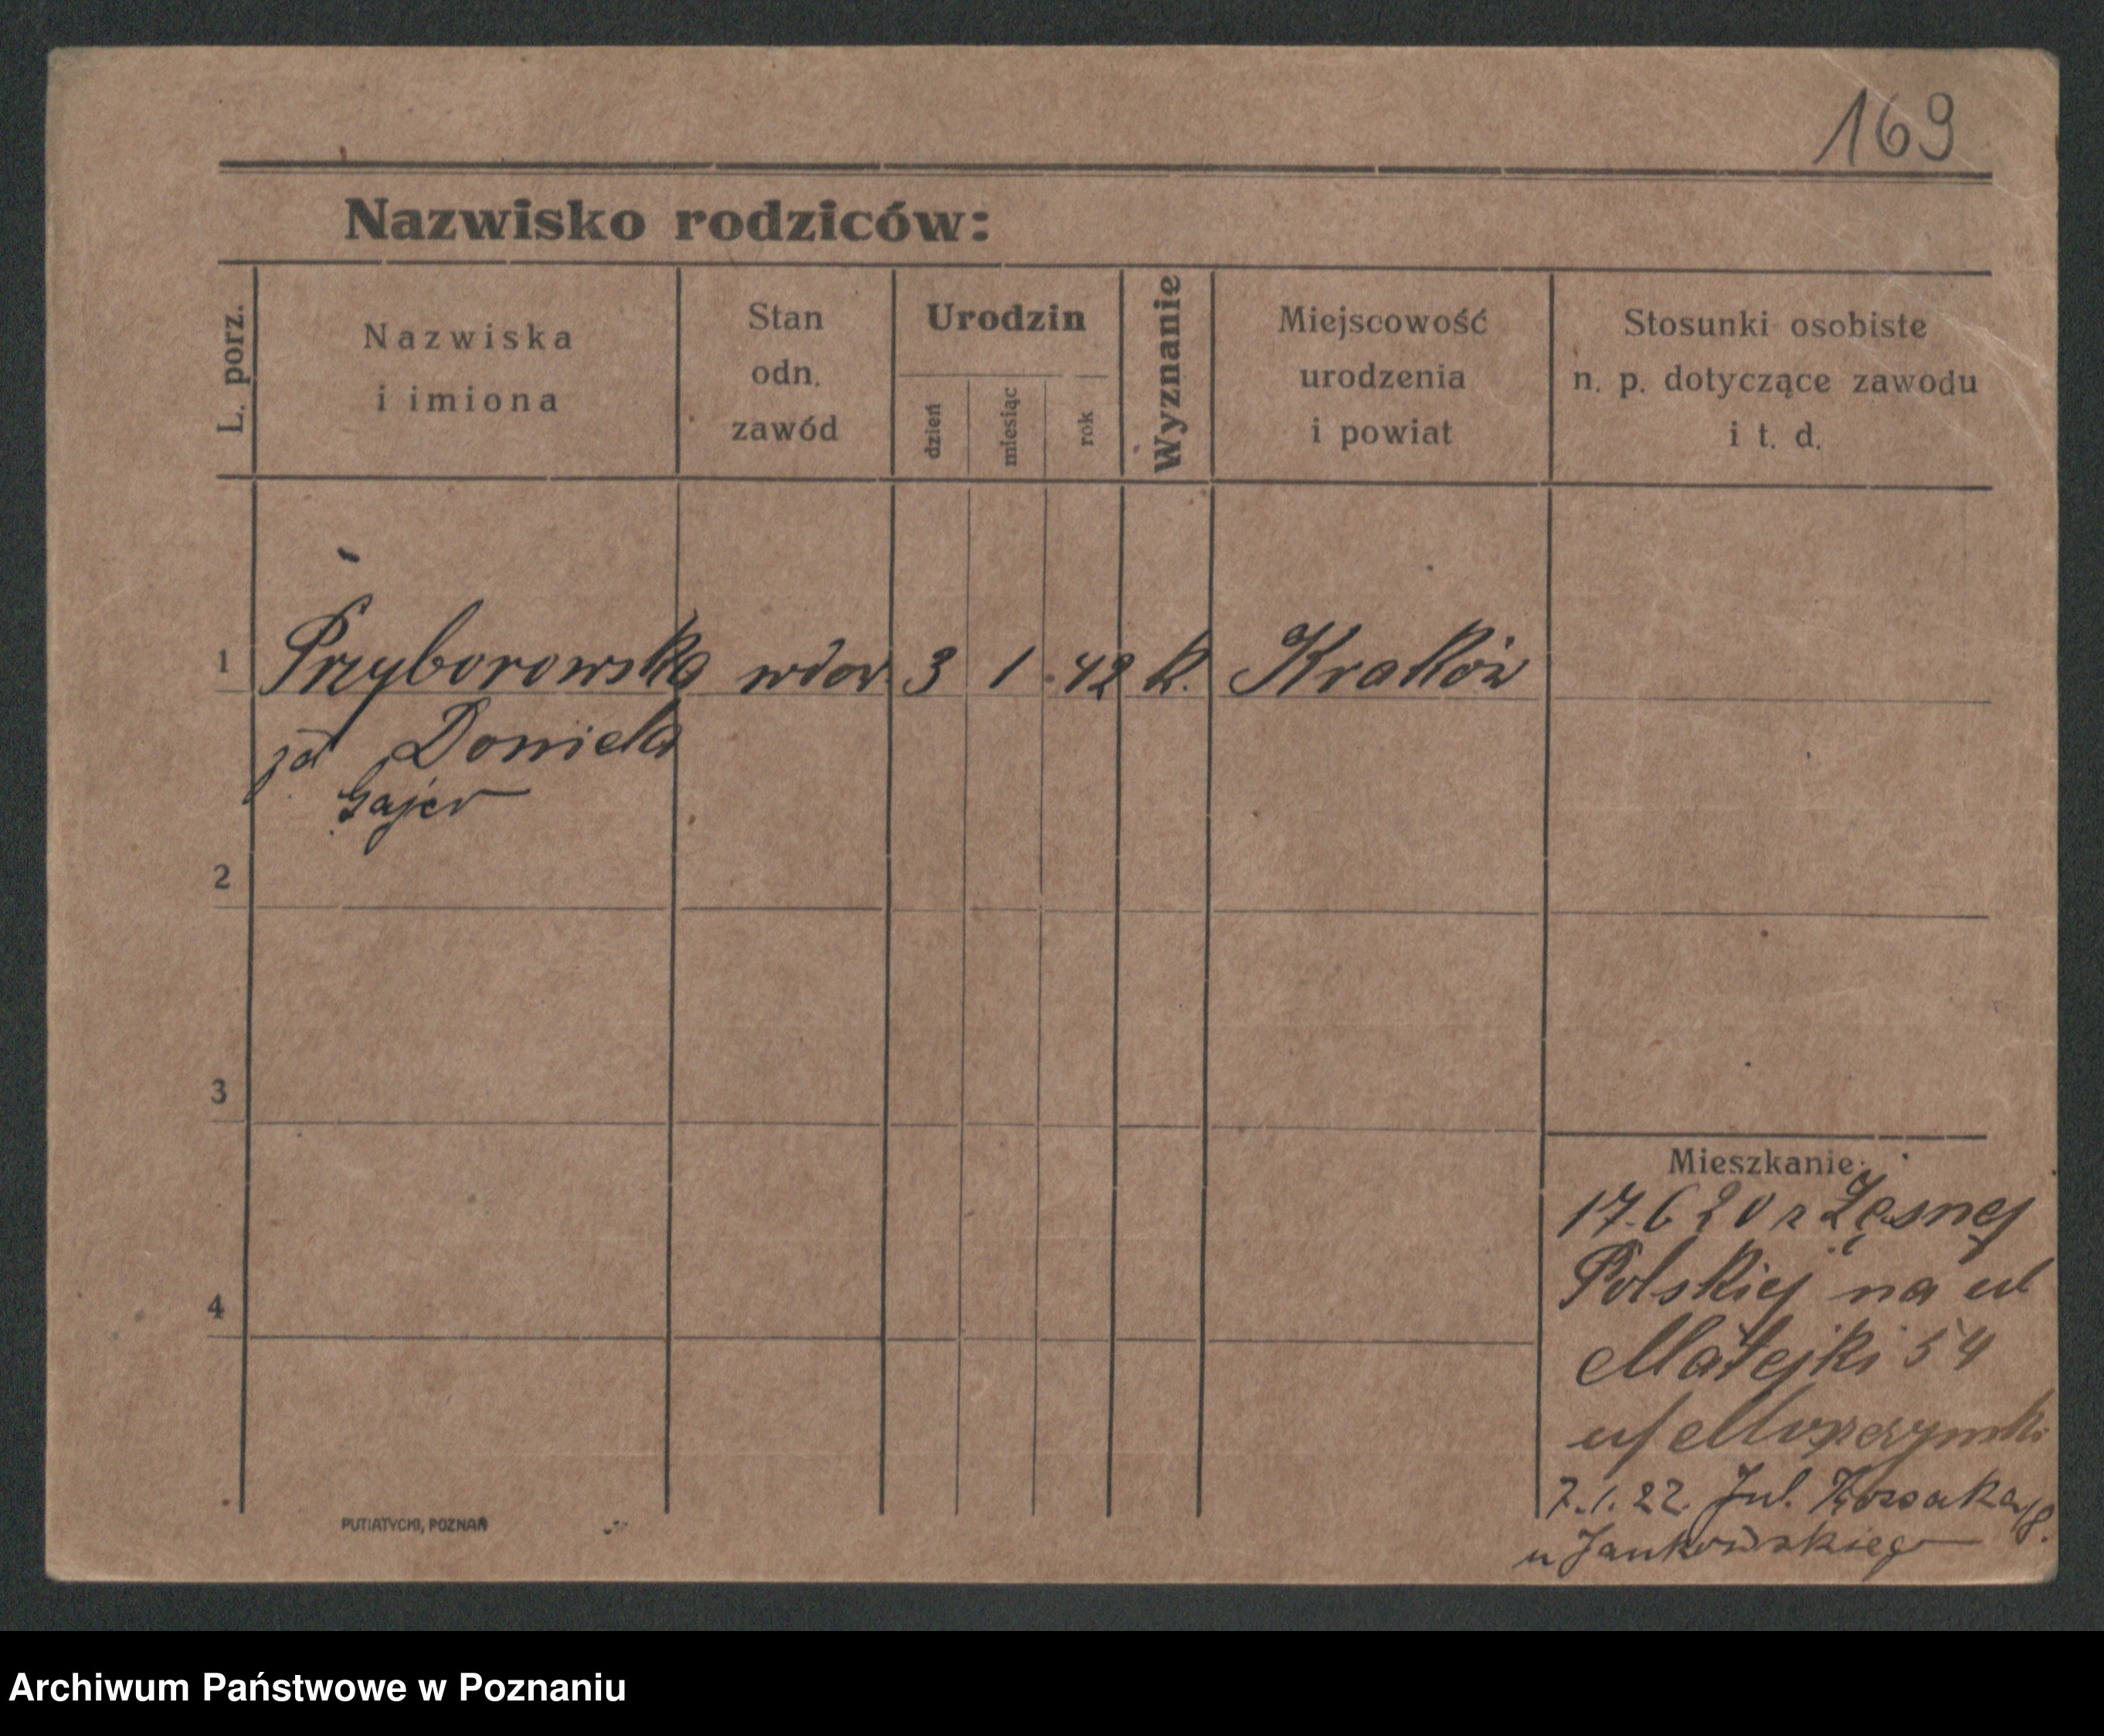 169
Nazwisko rodziców:
L. porz.
Nazwiska
i imiona
Stan
odn.
zawód
Urodzin
dzień
miesiąc
rok
Wyznanie
Miejscowość
urodzenia
i powiat
Stosunki osobiste
n. p. dotyczące zawodu
i t. d.
1 Przyborowska wdow. 3 1 42 k. Kraków
zd Daniela
Gajer
2
3
4
Mieszkanie:
17.6 20 z
Polskiej na ul
Matejki 54
7.1.22. Jul. Kossaka
u Jankowskiego
PUTIATYCKI, POZNAŃ
Archiwum Państwowe w Poznaniu